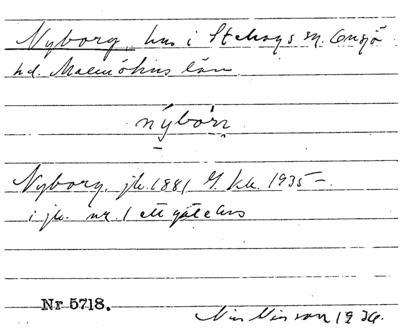 Nyborg, hus i St. Harg s sn. Onsjö
hd. Malmöhus län
nýbórꞃ
Nyborg. jb. 1881 G. kk. 1935 –
i jb. nr 1 ett gatehus
Nr 5718.
Nils Nilsson 1936.